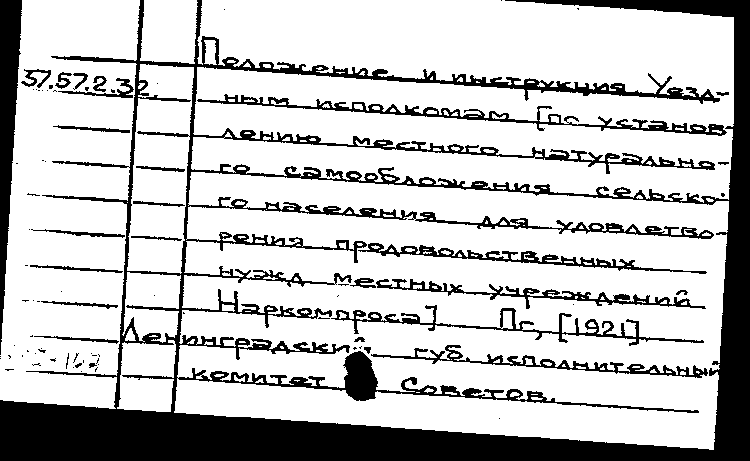 Положение и инструкция Уезд-
37.57.2.32.
ным исполкомам [по установ-
лению местного натурально-
го самообложения сельско-
го населения для удовлетво-
рения продовольственных
нужд местных учреждений
Наркомпроса] Пг, [1921]
Ленинградский губ. исполнительный
комитет Советов.